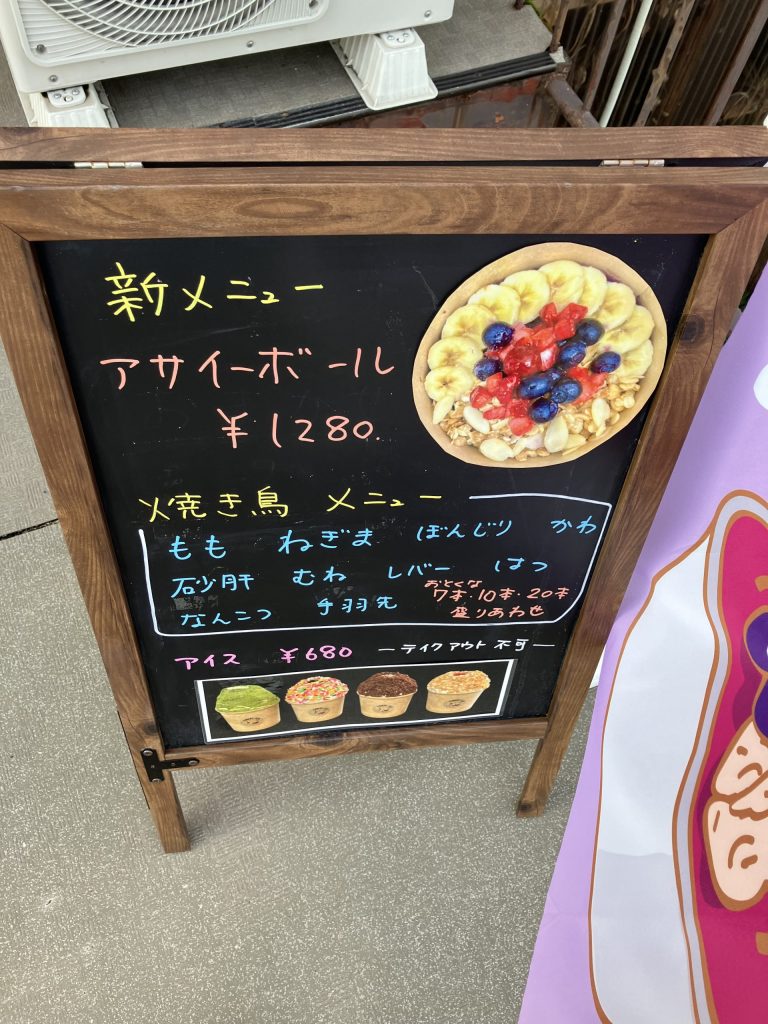 新メニュー
アサイーボール
¥1280.
焼き鳥 メニュー
もも ねぎま ぼんじり かわ
砂肝 むね レバー はつ
なんこつ 手羽先
おとくな
7本・10本・20本
盛りあわせ
アイス ¥680 ーテイクアウト不可ー